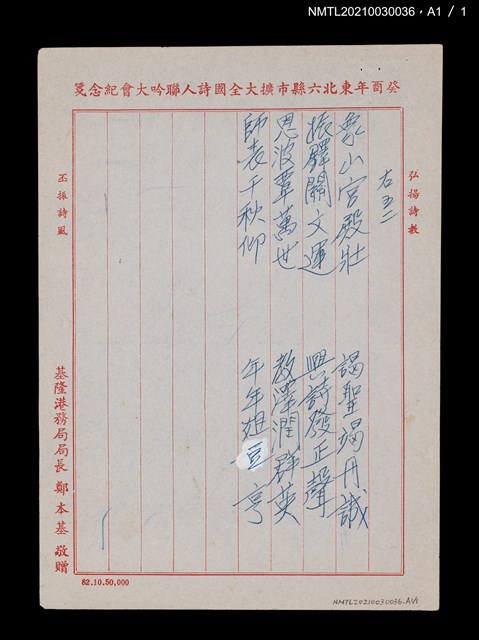 NMTL20210030036，A1 / 1
癸酉年東北六縣市擴大全國詩人聯吟大會紀念箋
弘揚詩教
右五二
象山宮殿壯 謁聖竭丹誠
振鐸開文運 興詩發正聲
恩波覃萬世 教澤潤群英
師表千秋仰 年年俎豆亨
丕振詩風
基隆港務局局長 鄭本基 敬贈
82.10.50,000
NMTL20210030036.AV1